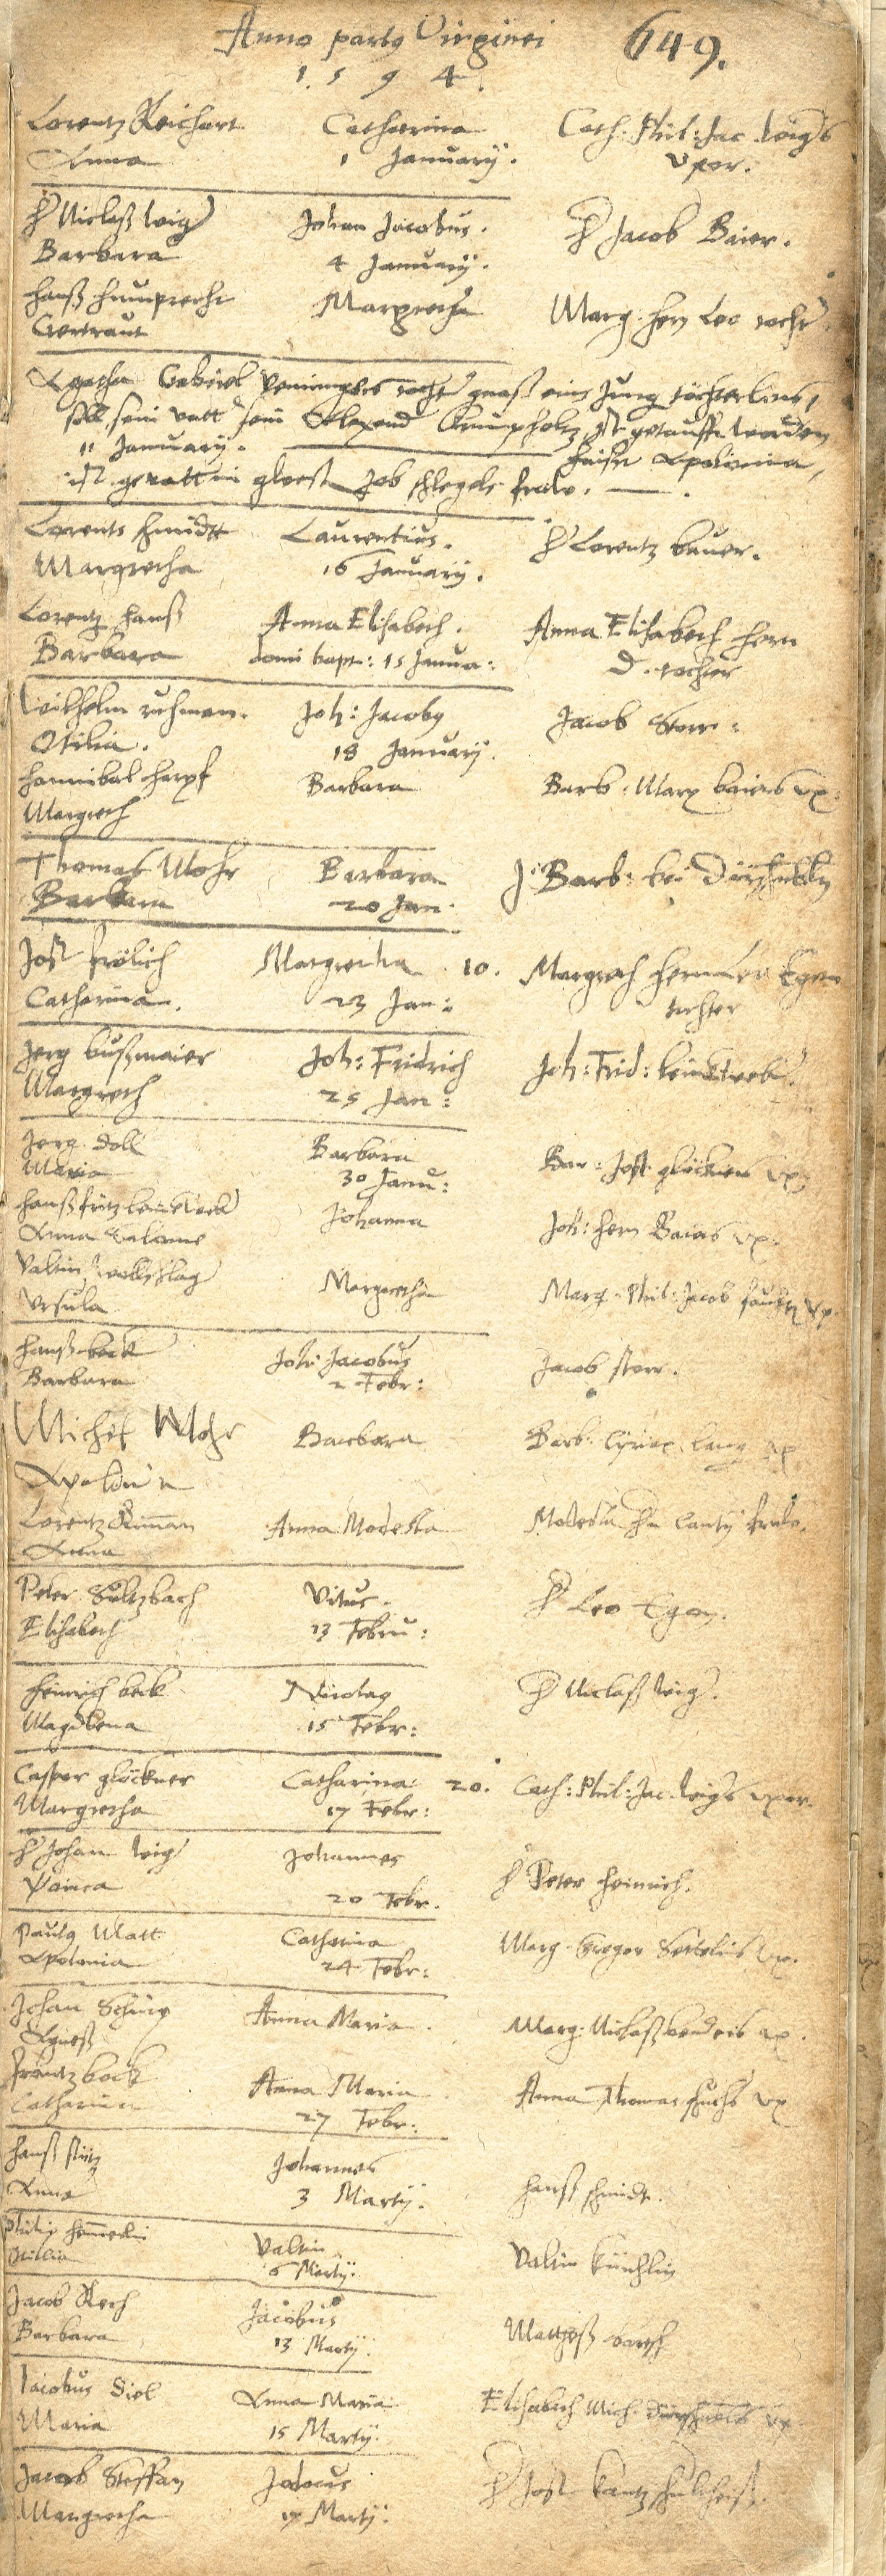 Anno partq Virginei 649.
1 5 9 4.
Lorentz Reichart Catharina Cath: Phil: Jac. weigs
Anna 1 January. vxor.
H Niclaß weig Johan Jacobus. H Jacob Baier.
Barbara 4 January.
Hanß Humprecht Margretha Marg. hern Leo tochter
Gertraut
Agatha Gabriel tochter eins Jung töchterlins,
soll sein vatt sein Krumpholtz, ist getaufft worden
11 January. heist Apolonia,
ist gevatterin Job schlegels fraw.
Lorentz schmidtt Laurentius. H Lorentz bauer.
Margretha 16 January.
Lorentz Hanß Anna Elisabeth. Anna Elisabeth hern
Barbara domi bapt: 15 Janua: D. tochter
Wilhelm ruhman. Joh: Jacobq Jacob Storr:
Otilia. 18 January.
Hannibal harpf Barbara Barb: Marx baiers vx:
Margreth
Thomas Mohr Barbara J Barb:
Barbara 20 Jan.
Jost frölich Margretha 10. Margreth Egen
Catharina. 23 Jan: tochter
Jerg bußmaier Joh: Fridrich Joh: Frid:
Margreth 25 Jan:
Jerg Doll Barbara Bar: Jost glöckners vx
Maria 30 Janu:
Hanß fritz Johanna Joh: hern Baiers vx.
Anna Salome
Valtin wollschlag Margretha Marg. Phil: Jacob vx.
Vrsula
Hanß beck Joh: Jacobus Jacob storr.
Barbara 2 Febr:
Michel Mohr Barbara Barb. Cyriax lang vx
Apolonia
Lorentz Riman Anna Modesta Modesta fraw.
Anna
Peter Sultzbach Vitus. H Leo Egon.
Elisabeth 13 Febru:
Heinrich beck Nicolaq H Niclaß weig.
Magdlena 15 Febr:
Casper glöckner Catharina 20. Cath: Phil: Jac. weigs vxor.
Margretha 17 Febr:
H Johan weig Johannes H Peter Heinrich.
20 Febr.
Paulq Matt Catharina Marg. Gregor vx.
Apolonia 24 Febr:
Johan Schürg Anna Maria. Marg. Niclaß benders vx.
Agneß
Frantz beck Anna Maria Anna Thomas fuchs vx
Catharina 27 Febr:
Hanß stütz Johannes Hanß schmidt.
Anna 3 Martÿ.
Philip Valtin Valtin küchlin
Otilia 6 Martÿ.
Jacob Rech Jacobus Matheß
Barbara 13 Martÿ.
Jacobus Diel Anna Maria Elisabeth Mich. vx
Maria 15 Martÿ.
Jacob Steffan Jodocus H Jost kantz schultheiß.
Margretha 17 Martÿ.